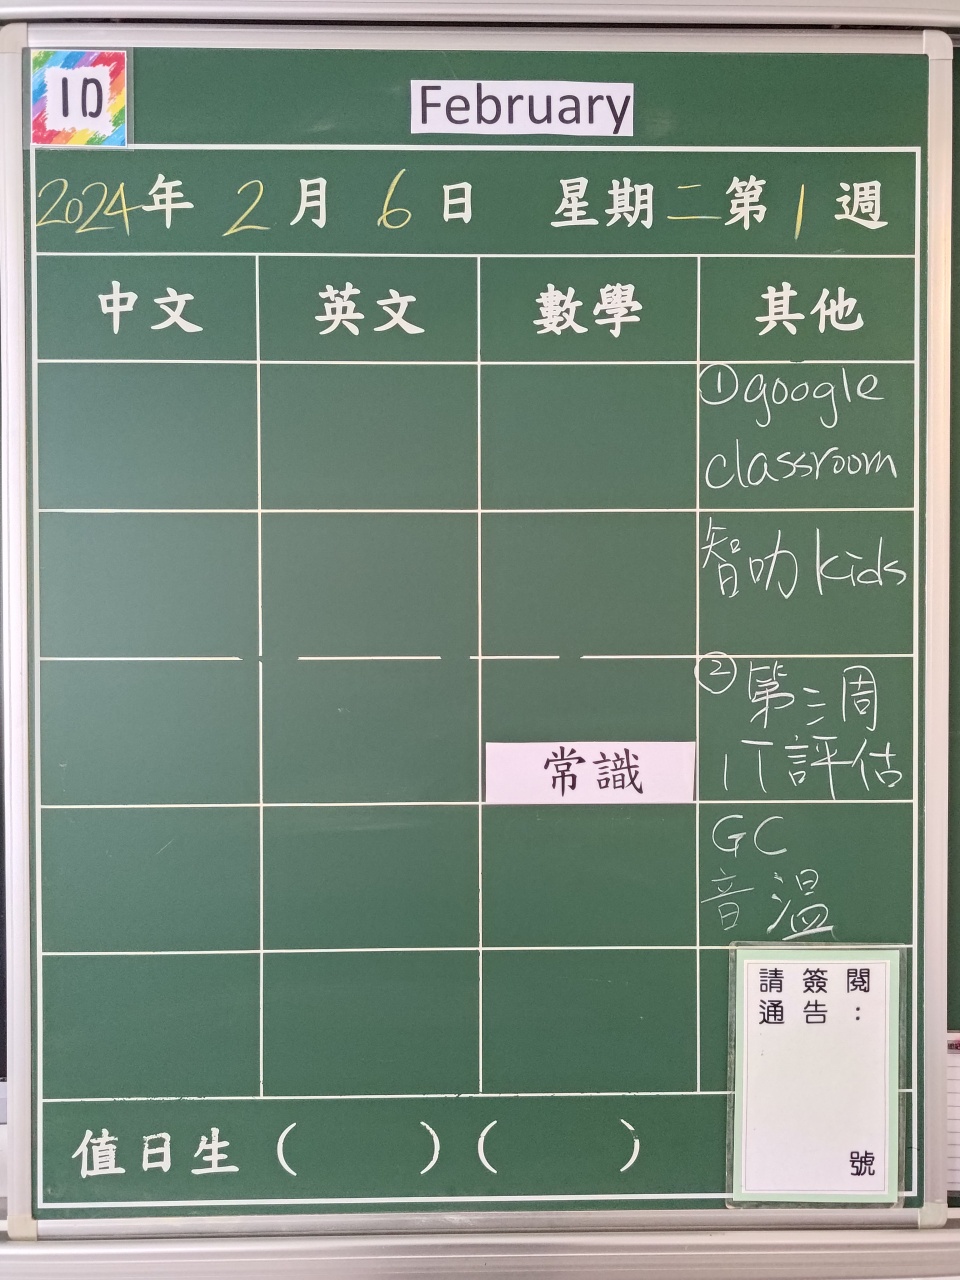 1D
February
2024年 2月 6日 星期二第1週
中文 英文 數學 其他
①google
classroom
智叻kids
②第三周
IT評估
常識
GC
音溫
請簽閱
通告：
號
值日生（ ）（ ）